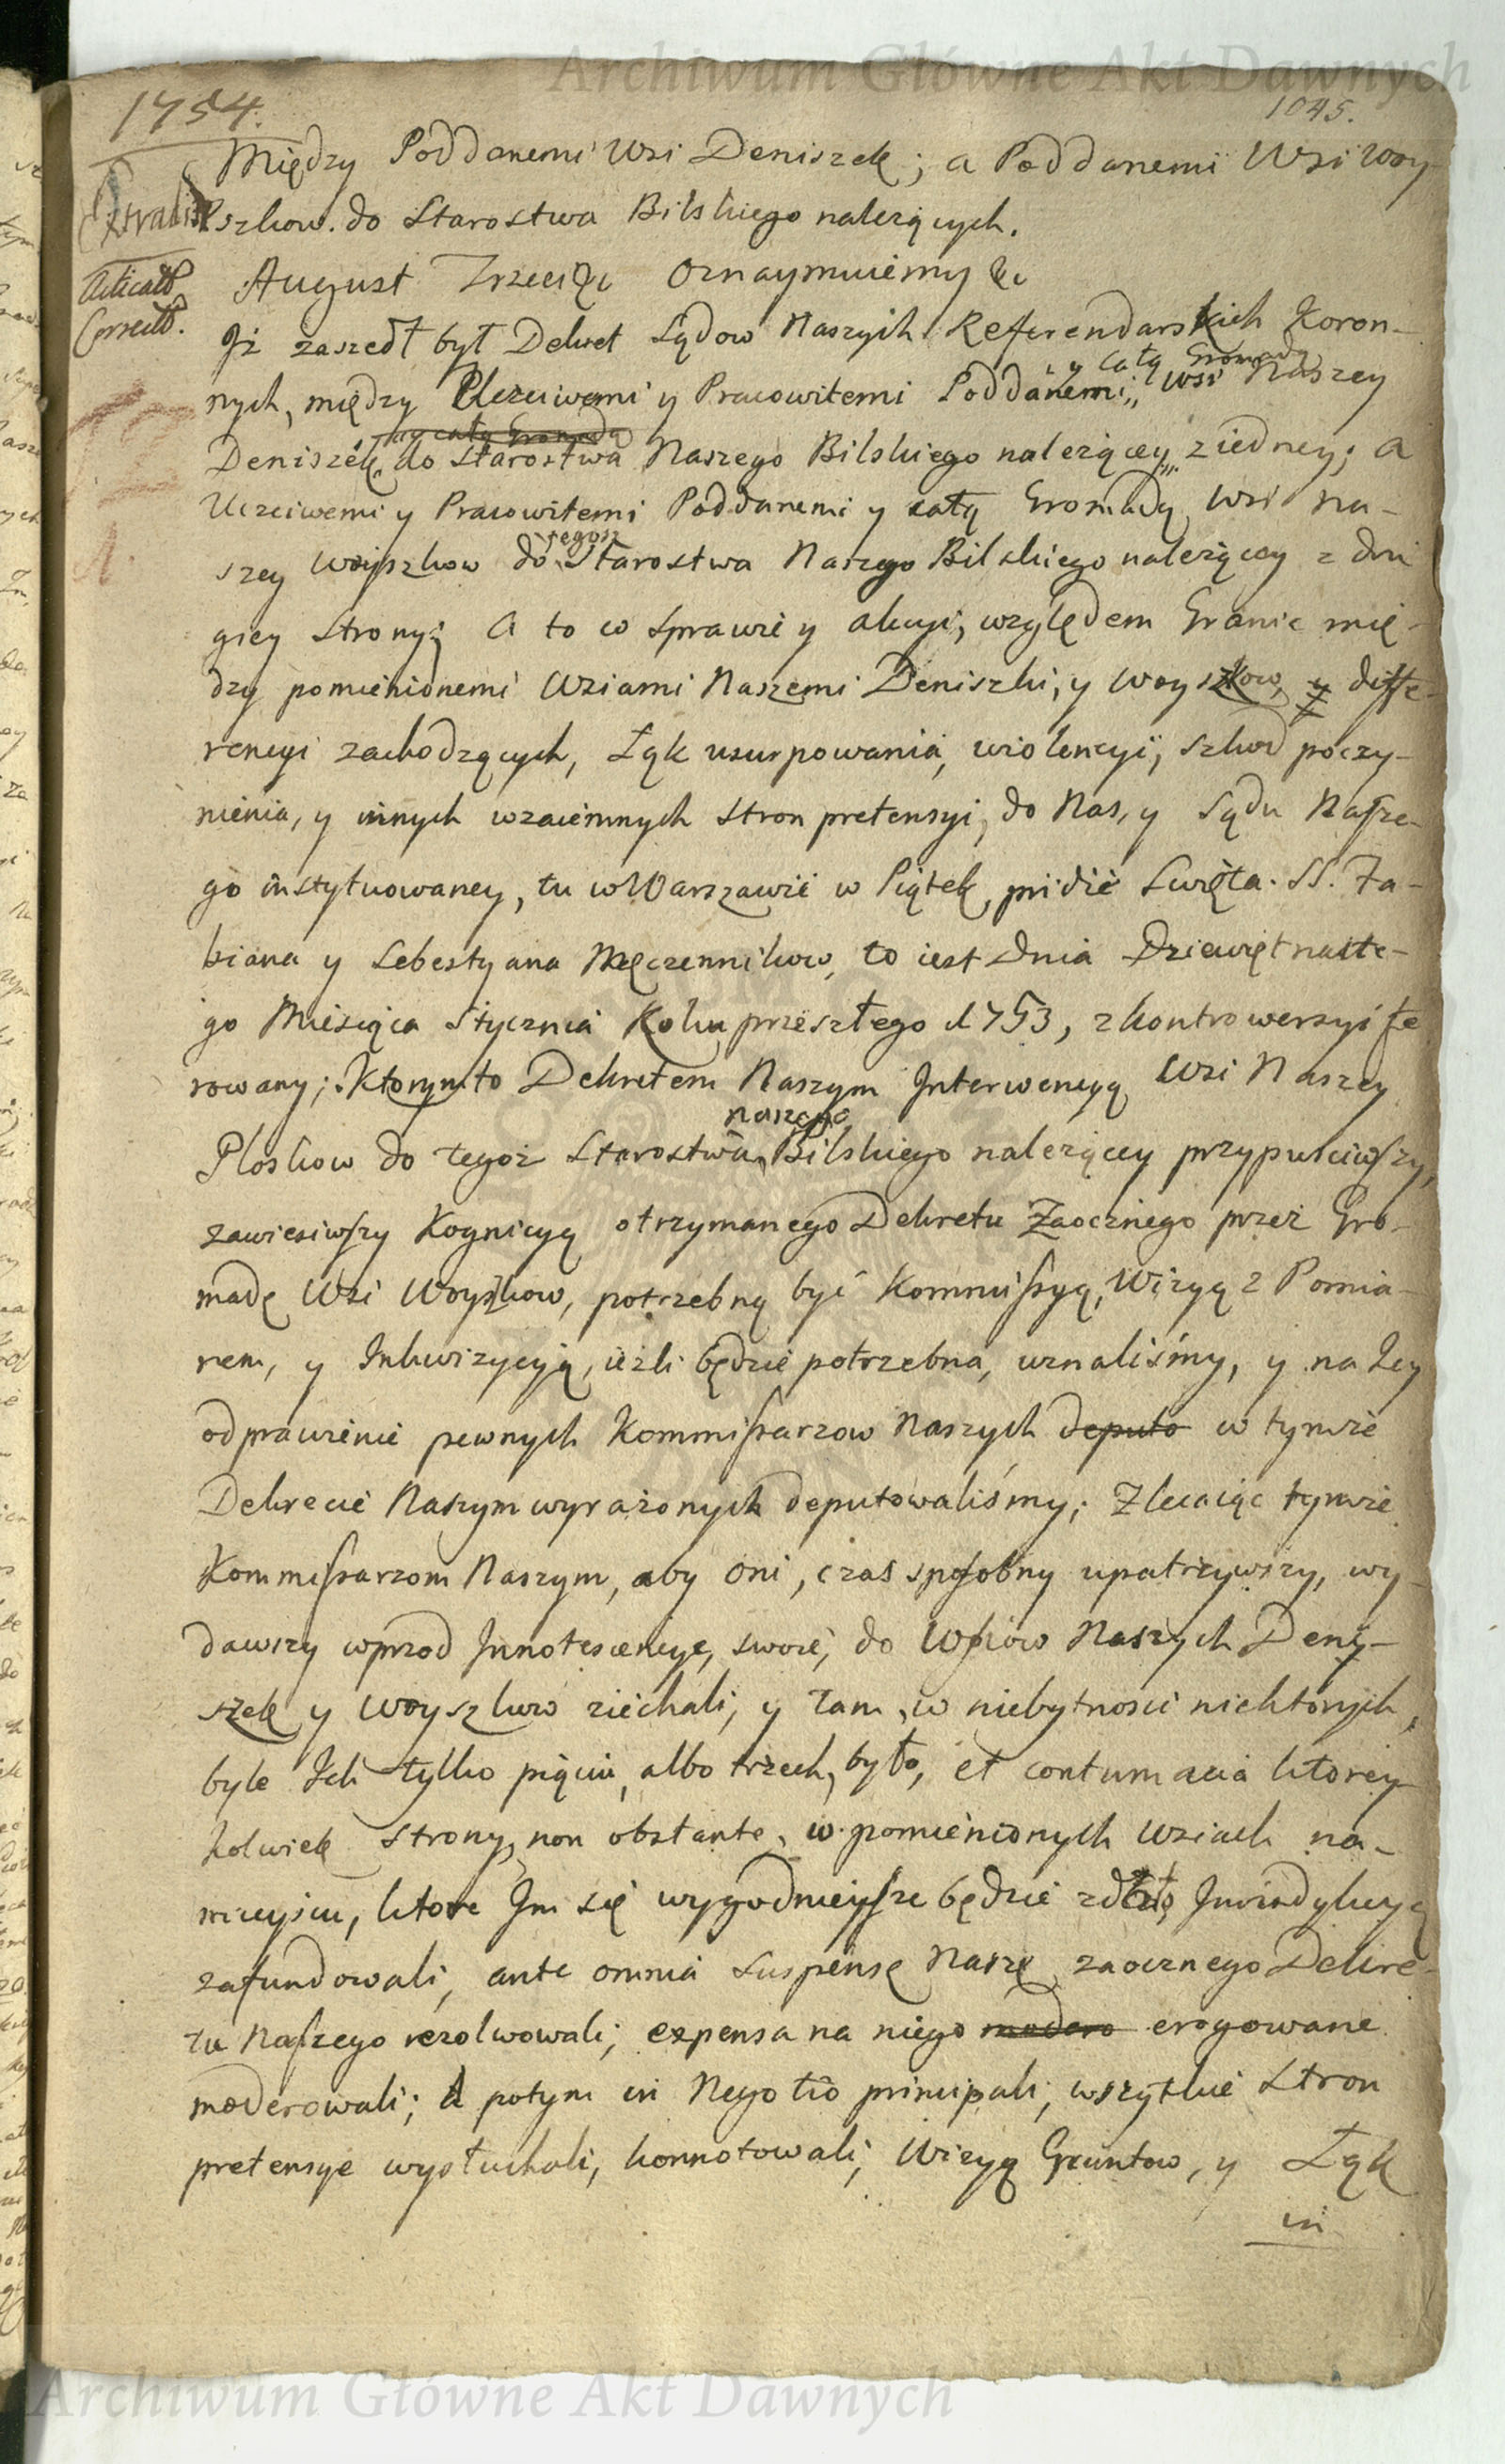 Archiwum Główne Akt Dawnych
1754.
1045.
Między Poddanemi Wsi Deniszek; a Poddanemi Wsi Woy-
szkow. do Starostwa Bilskiego należących.
August Trzeci &c Oznaymuiemy &c
Iż zaszedł był Dekret Sądow Naszych Referendarskich Koron-
nych, między Uczciwemi y Pracowitemi Poddanemi, y całą Gromadą Wsi Naszey
Deniszek, y całą Gromadą do Starostwa Naszego Bilskiego należącey, z iedney; a
Uczciwemi y Pracowitemi Poddanemi y całą Gromadą Wsi Na-
szey Woyszkow do tegoż Starostwa Naszego Bilskiego należącey z dru
giey Strony; A to w Sprawie y akcyi, względem Granic mię-
dzy pomienionemi Wsiami Naszemi Deniszki, y Woyszkow, y diffe-
rencyi zachodzących, Łąk usurpowania, wiolencyi, szkod poczy-
nienia, y innych wzaiemnych Stron pretensyi, do Nas, y Sądu Nasze-
go instytuowaney, tu w Warszawie w Piątek, pridie Święta. SS. Fa-
biana y Sebestyana Męczennikow, to iest Dnia Dziewiętnaste-
go Miesiąca Stycznia Roku przeszłego 1753, z kontrowersyi fe
rowany; Ktorymto Dekretem Naszym Interwencyą Wsi Naszey
Ploskow do tegoż Starostwa naszego Bilskiego należącey przypuściwszy,
zawiesiwszy Kognicyą otrzymanego Dekretu Zaocznego przez Gro-
madę Wsi Woyszkow, potrzebną być Kommissyą, Wizyą z Pomia-
rem, y Inkwizycyją, ieżli będzie potrzebna, uznaliśmy, y na Jey
odprawienie pewnych Kommissarzow Naszych deputo w tymże
Dekrecie Naszym wyrażonych deputowaliśmy; Zlecaiąc tymże
Kommissarzom Naszym, aby oni, czas sposobny upatrzywszy, wy-
dawszy wprzod Innotescencye, swoie, do Wsiow Naszych Deni-
szek y Woyszkow ziechali, y tam, w niebytności niektórych,
byle Ich tylko pięciu, albo trzech, było, et contumacia ktorey-
kolwiek Strony, non obstante, w pomienionych Wsiach na-
mieyscu, ktore Im się wygodnieysze będzie zdało, Jurisdykcyą
zafundowali, ante omnia Suspensę Naszę zaocznego Dekre-
tu Naszego rezolwowali; expensa na niego modero erogowane
moderowali; A potym in Negotio principali, wszytkie Stron
pretensye wysłuchali, konnotowali, Wizyą Gruntow, y Łąk
in
Archiwum Główne Akt Dawnych